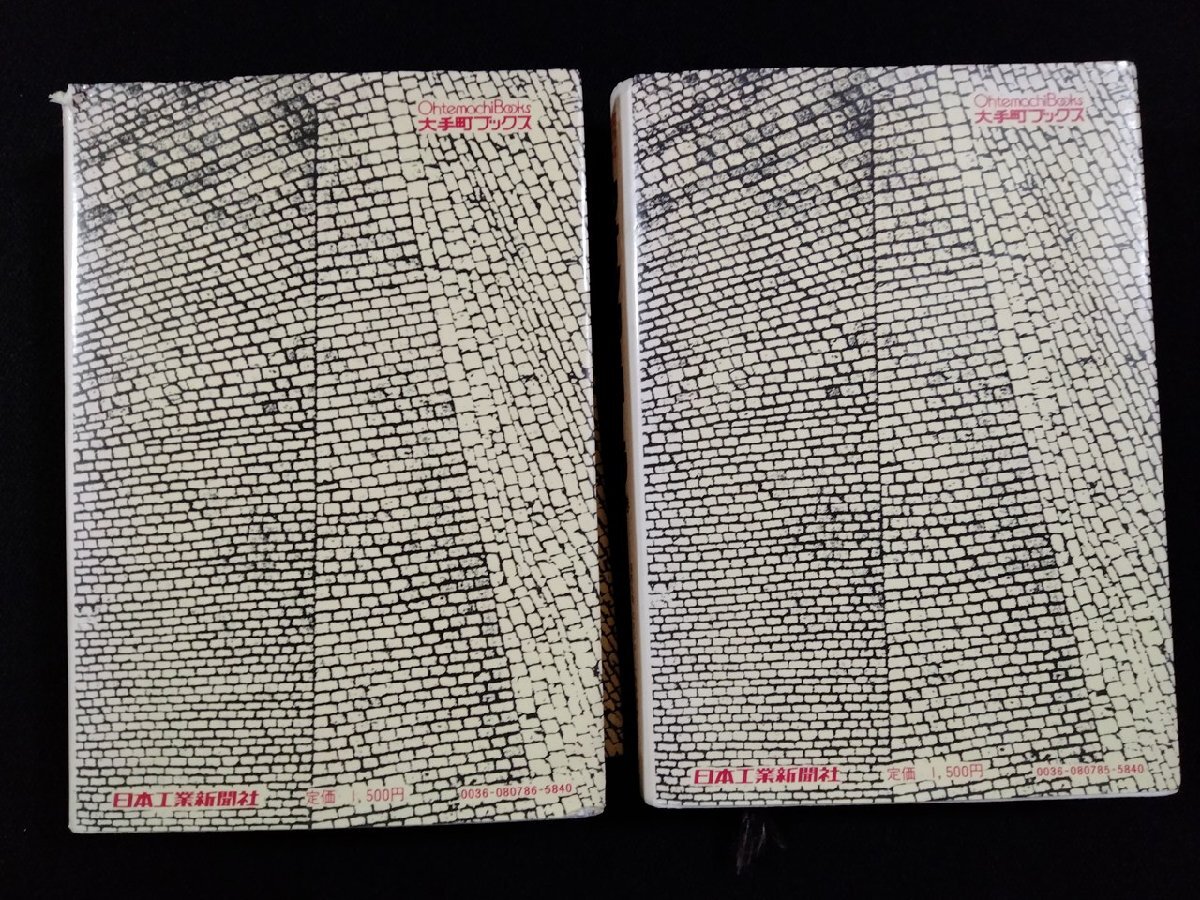 OhtemachiBooks
大手町ブックス
日本工業新聞社 定価 1,500円 0036-080786-5840
OhtemachiBooks
大手町ブックス
日本工業新聞社 定価 1,500円 0036-080785-5840